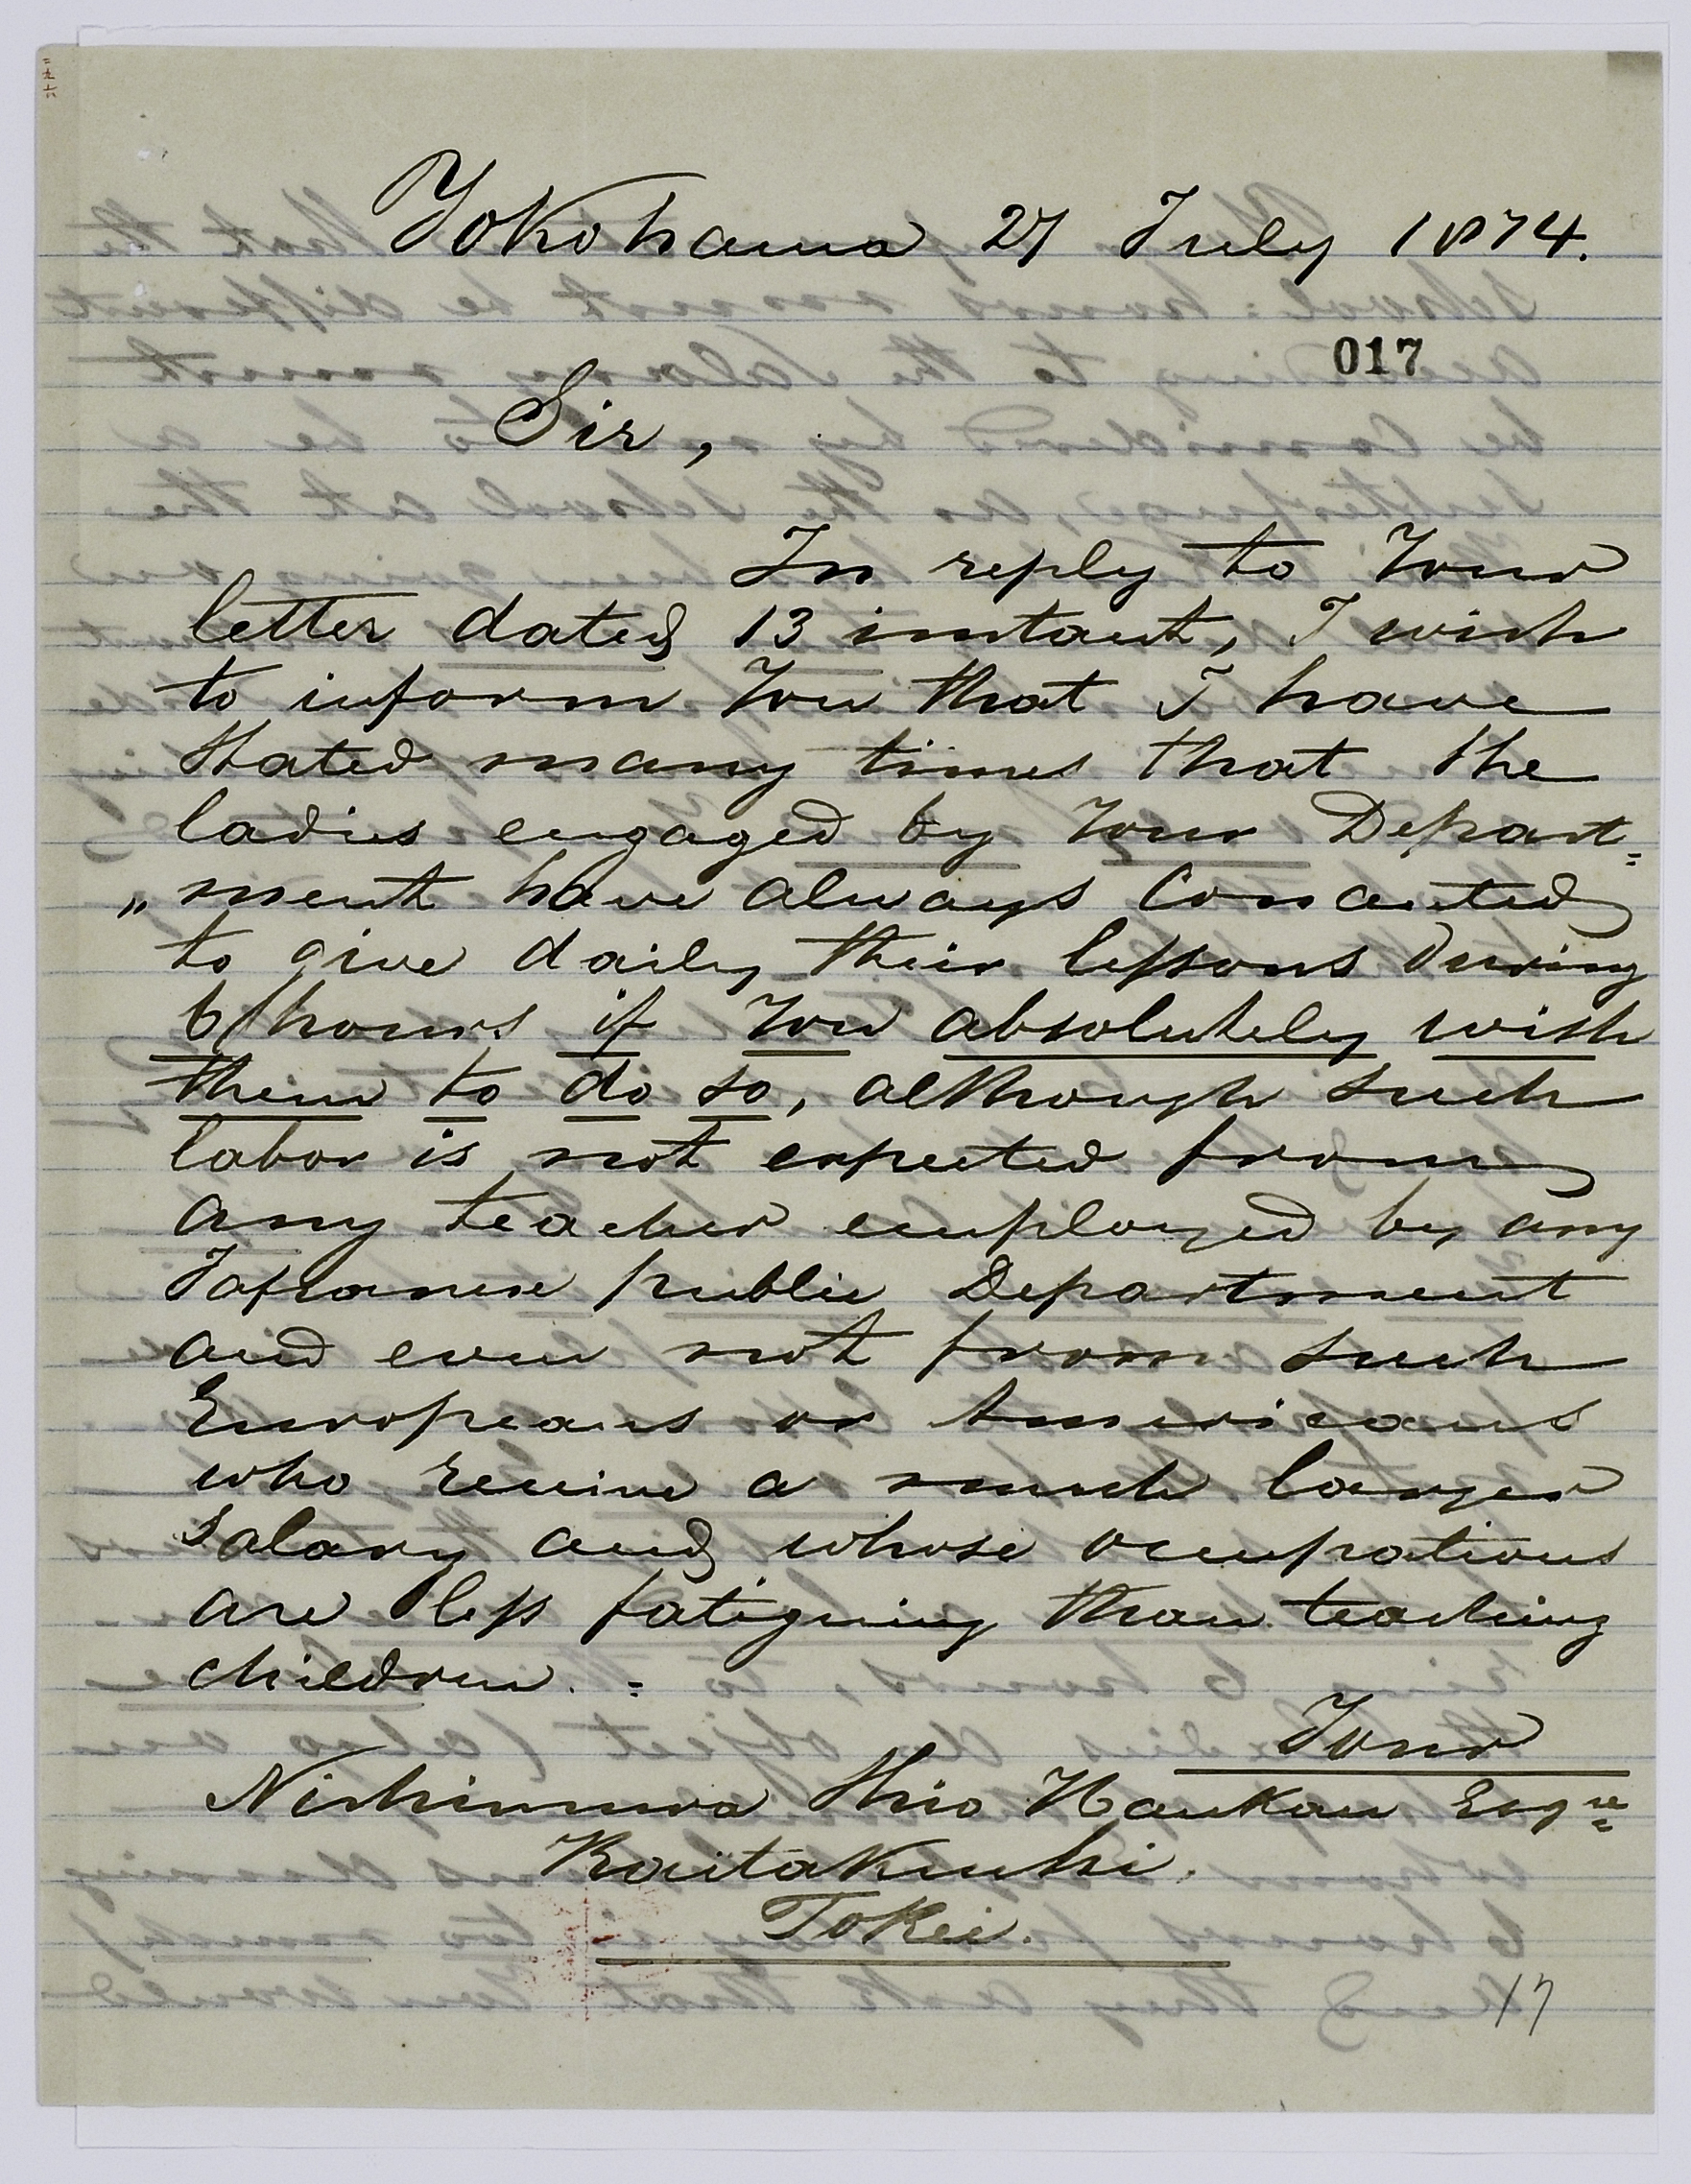 Yokohama 27 July 1874.
017
Sir,
In reply to Your
letter dated 13 instant, I wish
to inform You that I have
stated many times that the
ladies engaged by Your Depart=
„ment have always consented
to give daily their lessons during
6 hours if You absolutely wish
them to do so, although such
labor is not expected from
any teacher employed by any
Japanese public Department
and even not from such
Europeans or Americans
who receive a much larger
salary and whose occupations
are less fatiguing than teaching
children. =
Your
Nishimura Hankan Esqre
Kaitakushi.
Tokei.
17